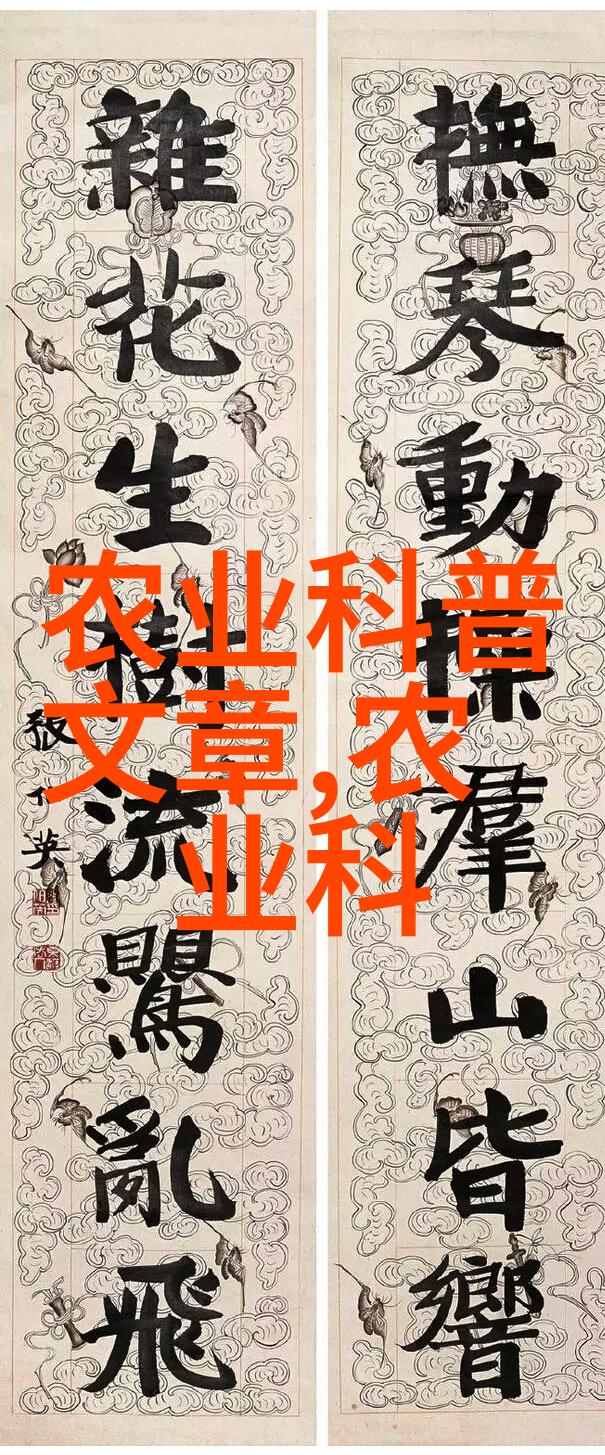 撫琴動操羣山皆響
雜花生樹流鸎亂飛
張伯英
农业科普
文章,农
业科